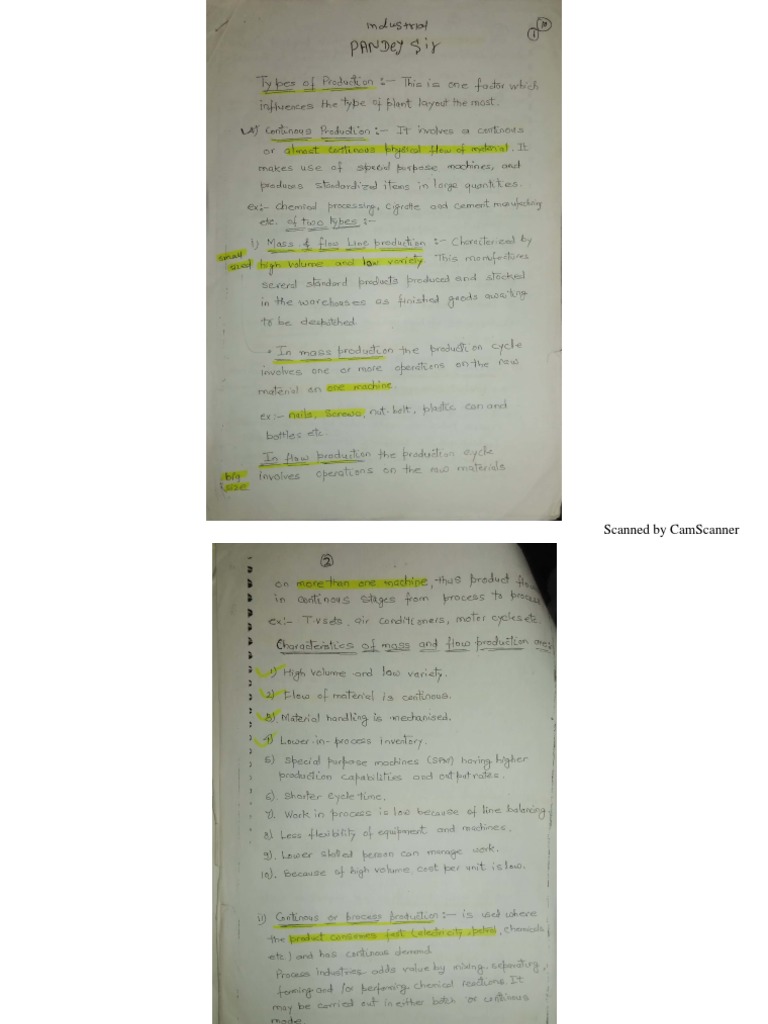 Industrial
PANDEY Sir
1
Types of Production :- This is one factor which
influences the type of plant layout the most.
Continous Production :- It involves a continous
or almost continous physical flow of material. It
makes use of special purpose machines, and
produces standardized items in large quantities.
ex:- chemical processing, cigrette and cement manufacturing
etc. of two types :-
i) Mass & flow Line production :- Charcterised by
small
sized
high volume and low variety. This manufactures
several standard products produced and stocked
in the warehouses as finished goods awaiting
to be despatched
In mass production the production cycle
involves one or more operations on the raw
material on one machine.
ex:- nails, screws, nut-bolt, plastic can and
bottles etc
In flow production the production cycle
big
size
involves operations on the raw materials
Scanned by CamScanner
2
on more than one machine, thus product
in continous stages from process to process
ex:- T.v sets, air conditioners, motor cycles etc.
Characteristics of mass and flow production are
1) High volume and low variety.
2) Flow of material is continous.
3) Material handling is mechanised.
4) Lower-in-process inventory.
5) Special purpose machines (SPM) having higher
production capabilities and output rates.
6) Shorter cycle time.
7) Work in process is low because of line balancing
8) Less flexibility of equipment and machines.
9) Lower skilled person can manage work.
10) Because of high volume, cost per unit is low.
ii) Continous or process production :- is used where
the product consumes fast (electricity, petrol, chemicals
etc) and has continous demand
Process Industries adds value by mixing, separating,
forming and/or performing chemical reactions. It
may be carried out in either batch or continous
mode.